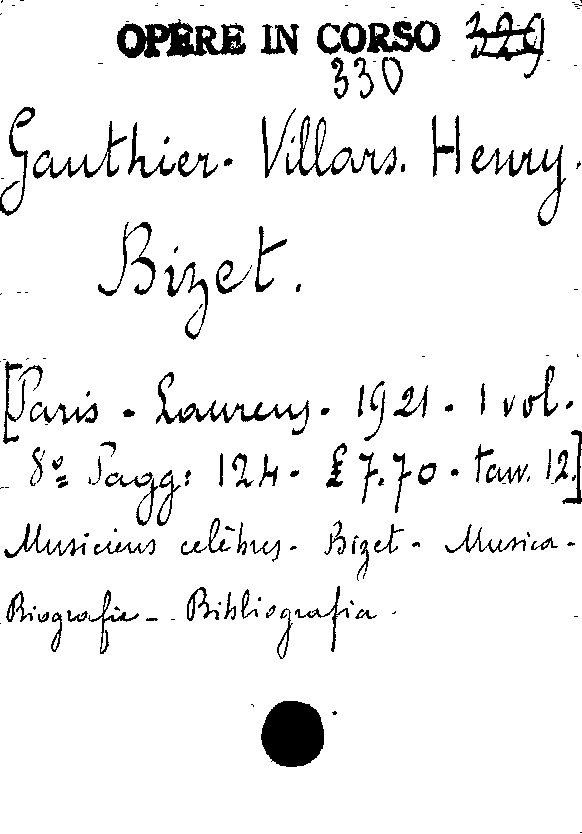 OPERE IN CORSO 329
330
Gauthier-Villars. Henry.
Bizet.
[Paris - Laurens - 1921 - 1 vol.
8º Pagg: 124 - £ 7.70 - tav. 12.]
Musiciens celèbres - Bizet - Musica -
Biografie - Bibliografia.